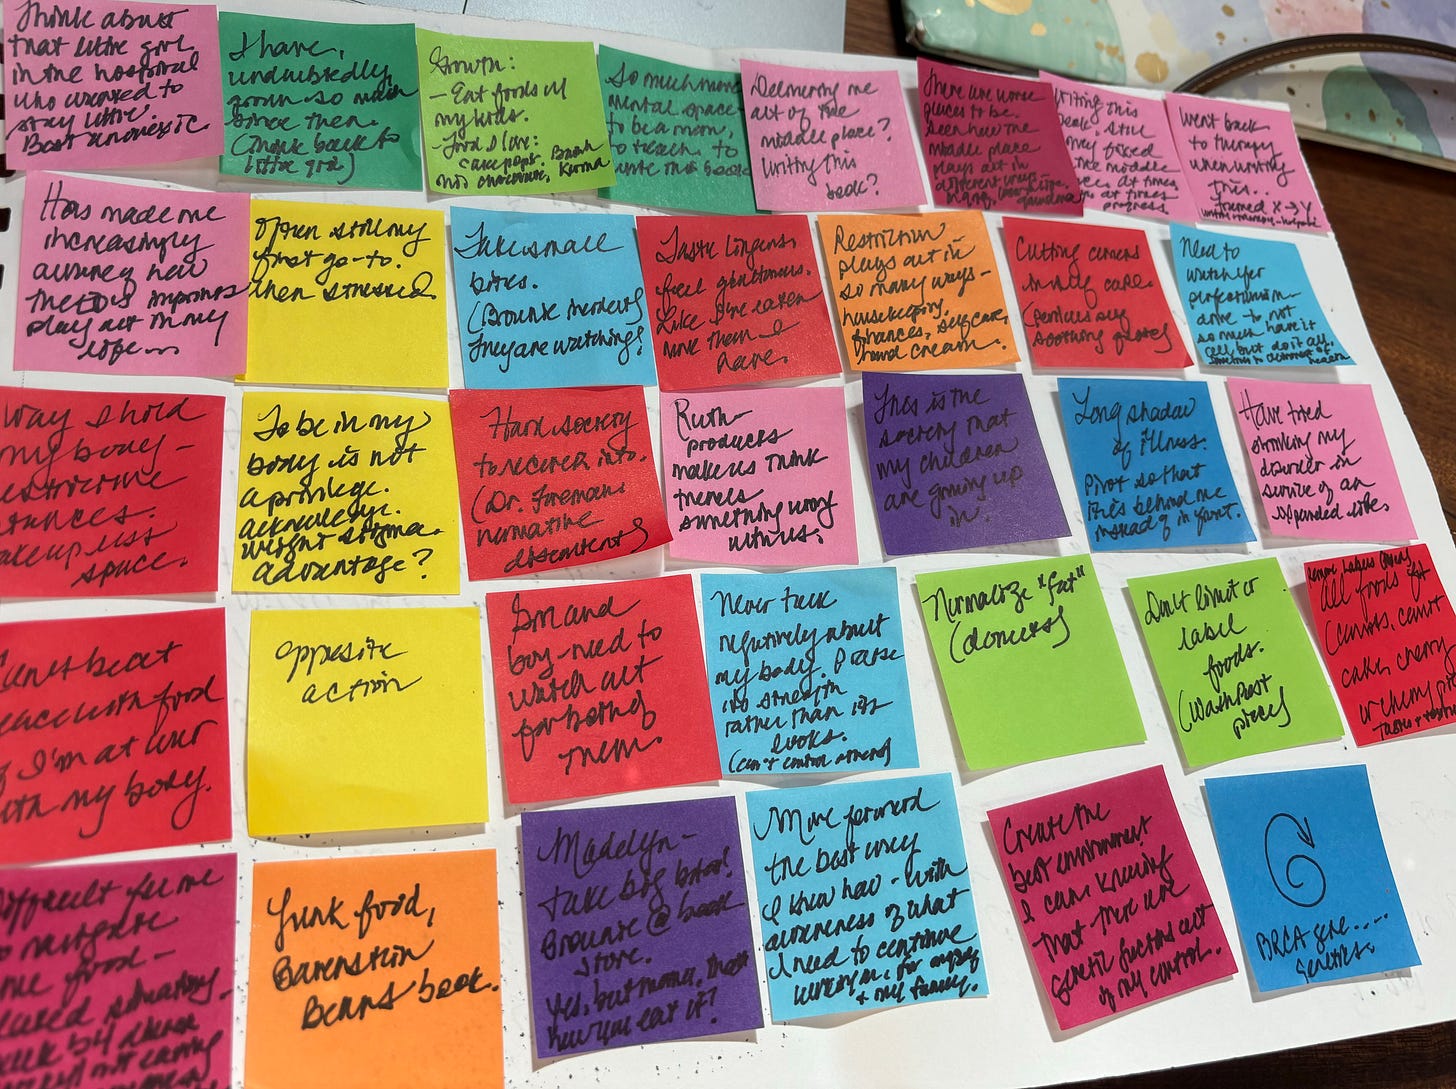 Think about
that little girl
in the hospital
who wanted to
stay little.
Best anorexic.
I have,
undoubtedly
grown so much
since then.
(Think back to
little girl)
Growth:
- Eat foods w/
my kids.
Food I love:
cake pops,
So much more
mental space
to be a mom,
to teach, to
write this book
Delivering me
out of the
middle place?
Writing this
book?
There are worse
places to be.
Seen how the
middle place
plays out in
different ways -
Writing this
book, still
in the middle
at times
at times
progress
Went back
to therapy
when writing
this..
turned X → Y
Has made me
increasingly
aware of how
these imprints
play out in my
life
Often still my
first go-to.
when stressed.
Take small
bites.
(Brownie incident)
They are watching!
Taste lingers.
feel gluttonous.
Like I've eaten
more than I
have.
Restriction
plays out in
so many ways -
housekeeping,
finances, self care,
hand cream.
Cutting corners
in my care.
soothing quotes)
Need to
watch for
perfectionism
drive - to not
so much have it
all, but do it all.
sometimes to detriment of
health
Way I hold
my body -
restrictive
stances.
Take up less
space.
To be in my
body is not
a privilege.
acknowledge.
weight stigma.
advantage?
Hard society
to recover into.
(Dr. Foreman:
normative
discontent)
Ruth -
products
make us think
there's
something wrong
with us.
This is the
society that
my children
are growing up
in.
Long shadow
of illness.
Pivot so that
it's behind me
instead of in front.
Have tried
shrinking my
disorder in
service of an
expanded life.
Can't be at
peace with food
if I'm at war
with my body.
Opposite
action
Girl and
boy - need to
watch out
for both of
them.
Never talk
negatively about
my body. Praise
its strength
rather than its
looks.
(can't control others)
Normalize "fat"
(donuts)
Don't limit or
label
foods.
(WashPost
piece)
All foods fit
(carrots, carrot
cake, cherry
or cherry pie
Difficult for me
to navigate
some food -
Junk food,
Barenstein
Bears book.
Madelyn -
take big bites!
Brownie @ book
store.
Yes, but mama, that's
how you eat it?
Move forward
the best way
I know how - with
awareness of what
I need to continue
working on, for myself
+ my family.
Create the
best environment
I can, knowing
that there are
genetic factors out
of my control.
BRCA gene.....
genetics.